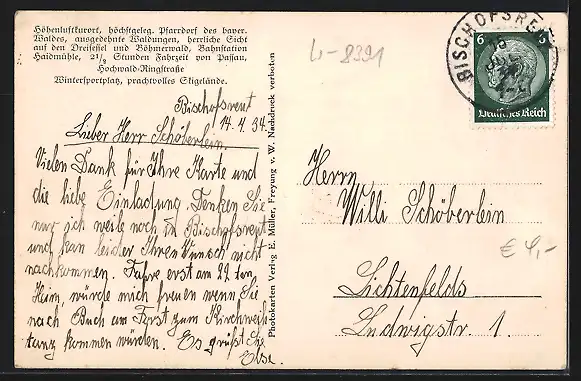 Höhenluftkurort, höchstgeleg. Pfarrdorf des bayer.
Waldes, ausgedehnte Waldungen, herrliche Sicht
auf den Dreisessel und Böhmerwald, Bahnstation
Haidmühle, 2½ Stunden Fahrzeit von Passau,
Hochwald-Ringstraße
Wintersportplatz, prachtvolles Skigelände.
Bischofsreut
14.4.34.
Lieber Herr Schöberlein.
Vielen Dank für Ihre Karte und
die liebe Einladung. Denken Sie
nur ich weile noch in Bischofsreut
und kan leider Ihren Wunsch nicht
nachkommen. Fahre erst am 22 ten
Heim, würde mich freuen wenn Sie
nach Buch am Forst zum Kirchweih
tanz kommen würden. Es grüßt Sie
Else.
Photokarten Verlag E. Müller, Freyung v. W. Nachdruck verboten
W-8391
BISCHOFSREUT
6 6
Deutsches Reich
Herrn
Willi Schöberlein
€ 4,-
Lichtenfelds
Ludwigstr. 1.